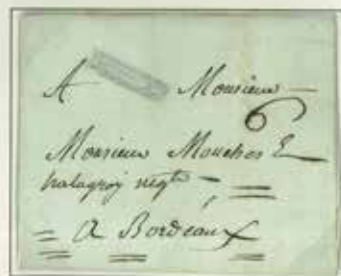 A Monsieur
6
Monsieur Mouchos &
négt
A Bordeaux